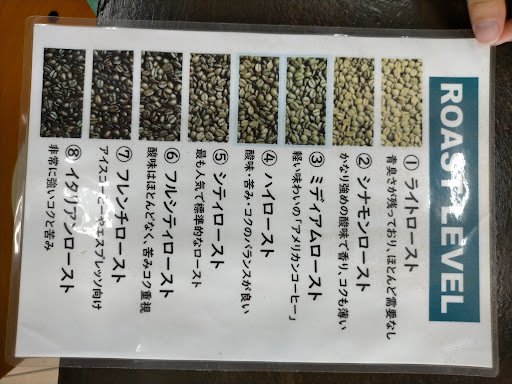 ROAST LEVEL
① ライトロースト
青臭さが残っており、ほとんど需要なし
② シナモンロースト
かなり強めの酸味で香り、コクも薄い
③ ミディアムロースト
軽い味わいの「アメリカンコーヒー」
④ ハイロースト
酸味・苦み・コクのバランスが良い
⑤ シティロースト
最も人気で標準的なロースト
⑥ フルシティロースト
酸味はほとんどなく、苦みコク重視
⑦ フレンチロースト
アイスコーヒーやエスプレッソ向け
⑧ イタリアンロースト
非常に強いコクと苦み